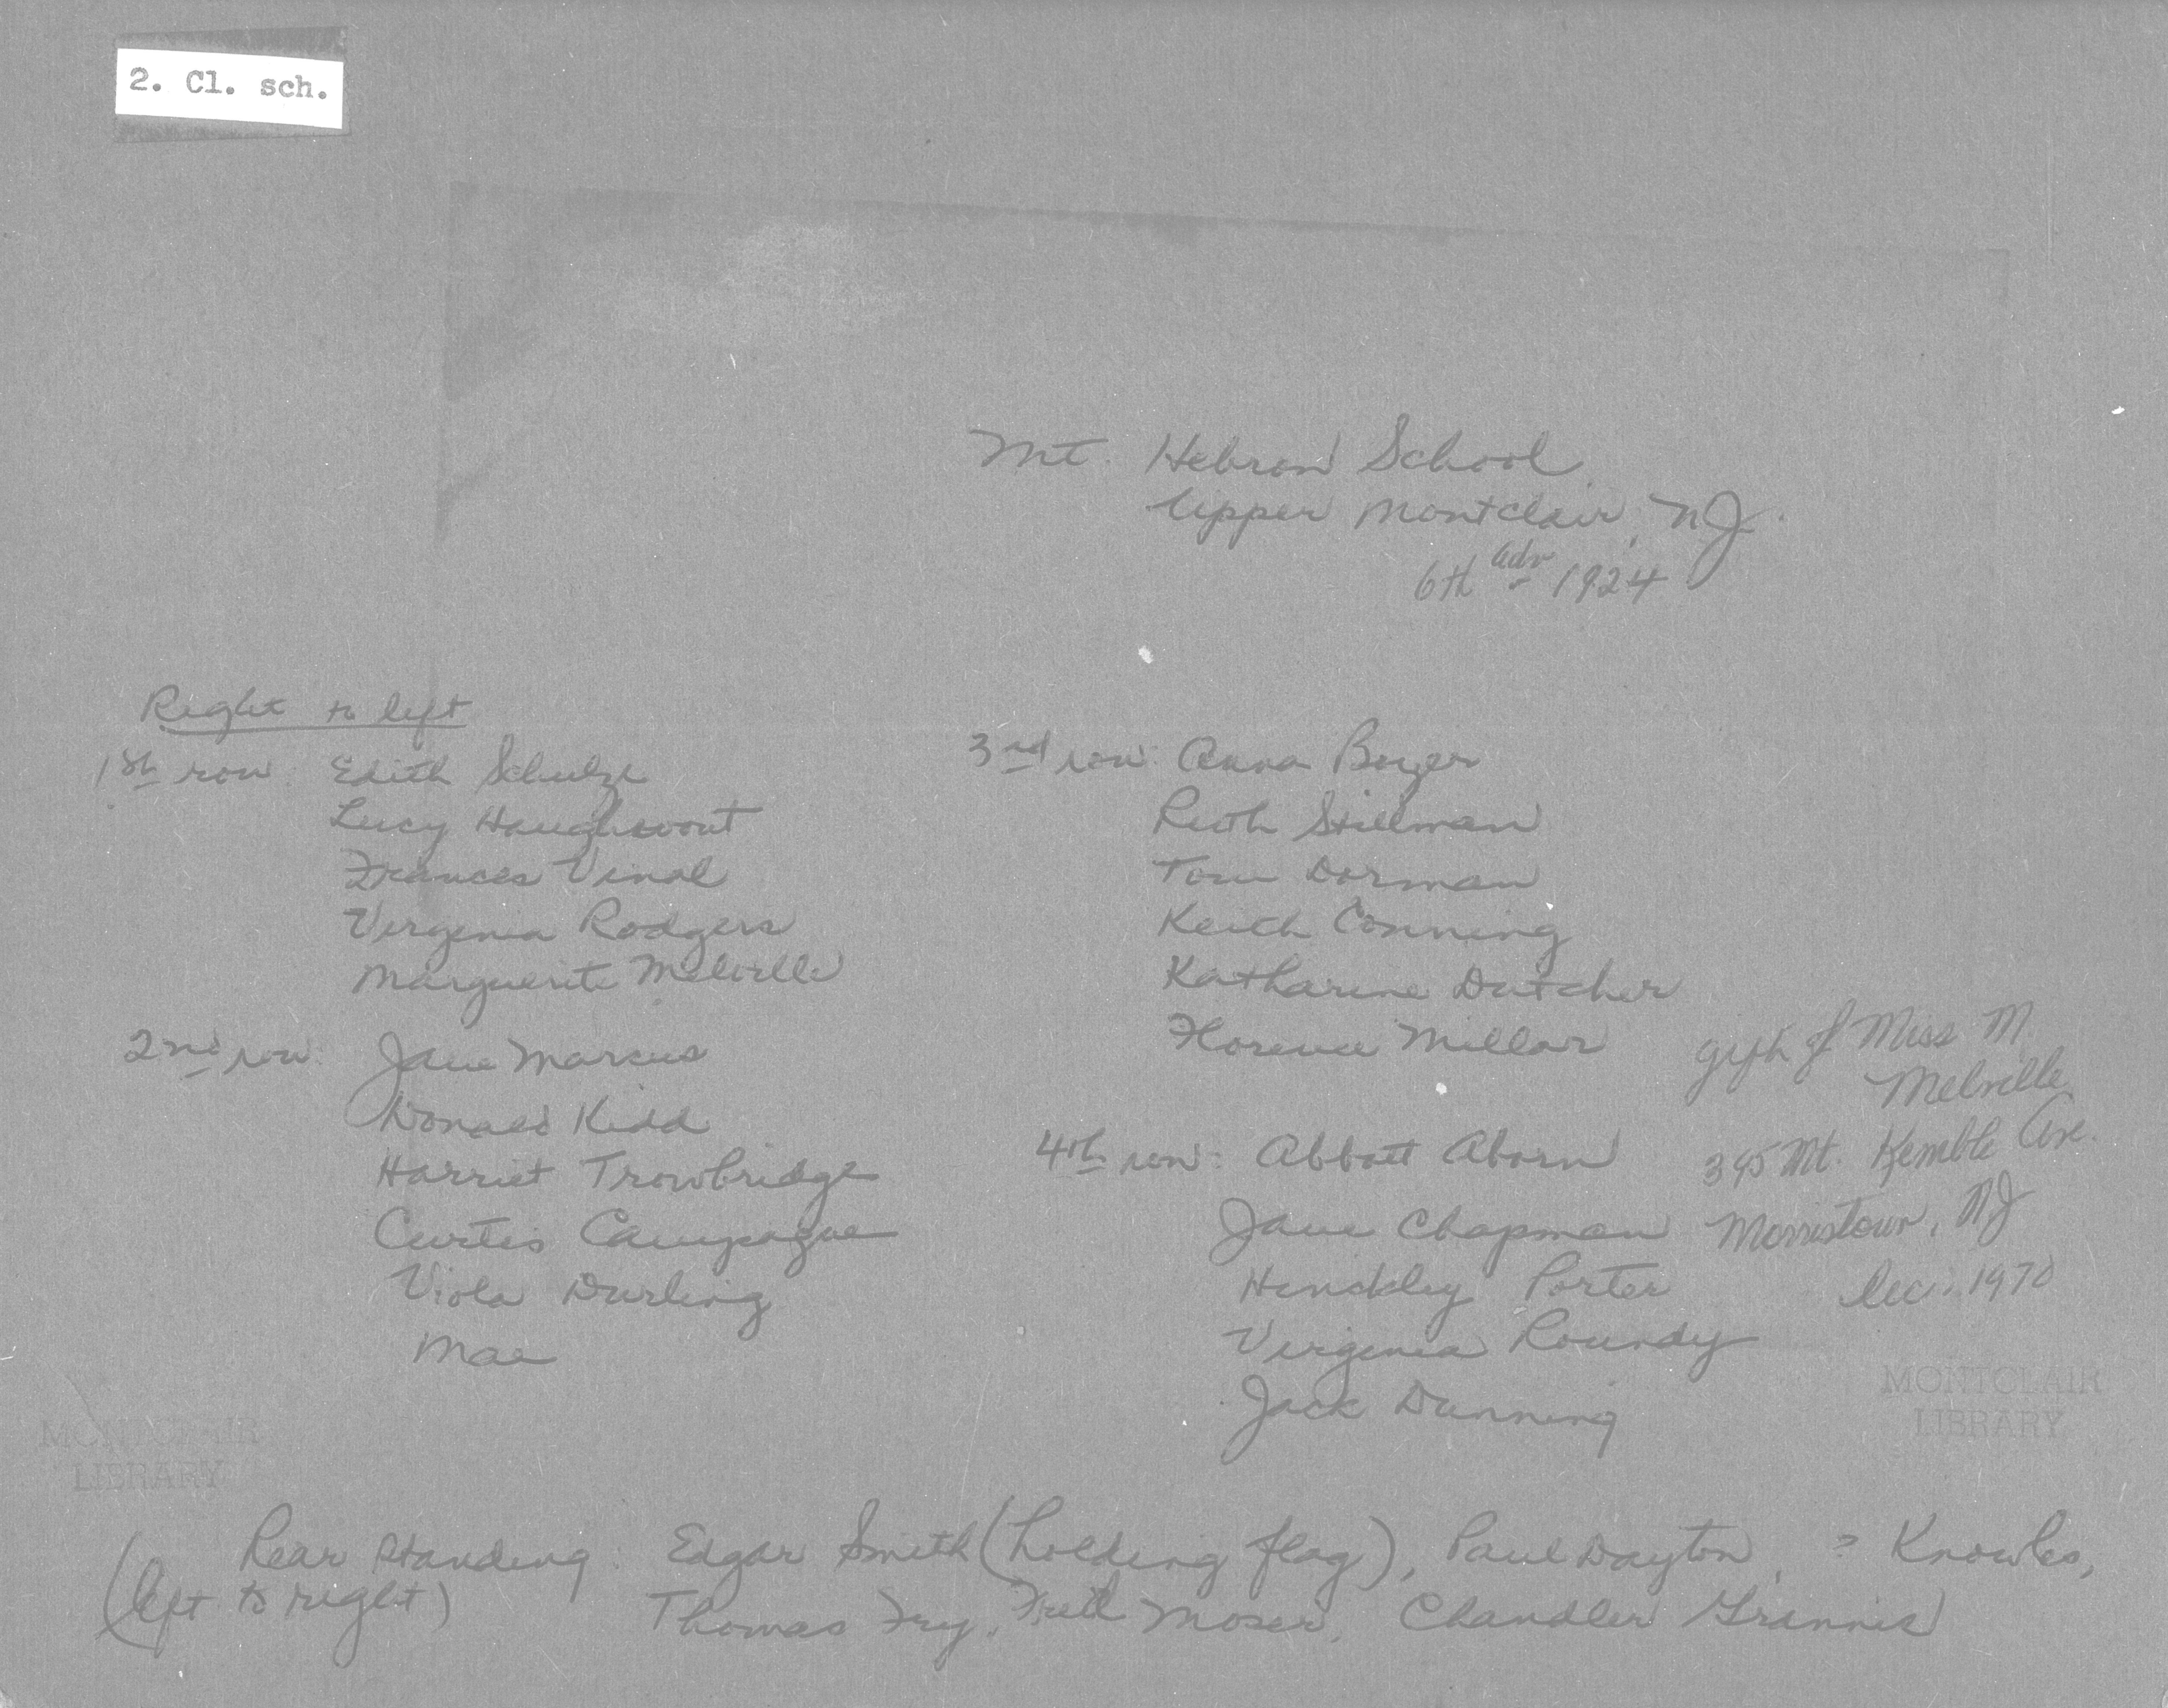 2. Cl. sch.
Mt. Hebron School
Upper Montclair, NJ.
6th adv 1924
Right to left
1st row: Edith Schulze
Lucy Haughwout
Frances Vinal
Virginia Rodgers
Marguerite Melville
2nd row: Jane Marcus
Donald Kidd
Harriet Trowbridge
Curtis Campaigne
Viola Darling
Mae
3rd row: Anna Boyer
Ruth Stillman
Tom Dorman
Keith Conning
Katharine Dutcher
Florence Millar
4th row: Abbott Aborn
Jane Chapman
Hinckley Porter
Virginia Roundy
Jack Dunning
gift of Miss M.
Melville
395 Mt. Kemble Ave.
Morristown, NJ
Dec. 1970
MONTCLAIR
LIBRARY
MONTCLAIR
LIBRARY
Rear standing: Edgar Smith (holding flag), Paul Dayton, ? Knowles,
(left to right) Thomas Fry, Fred Moser, Chandler Grannis